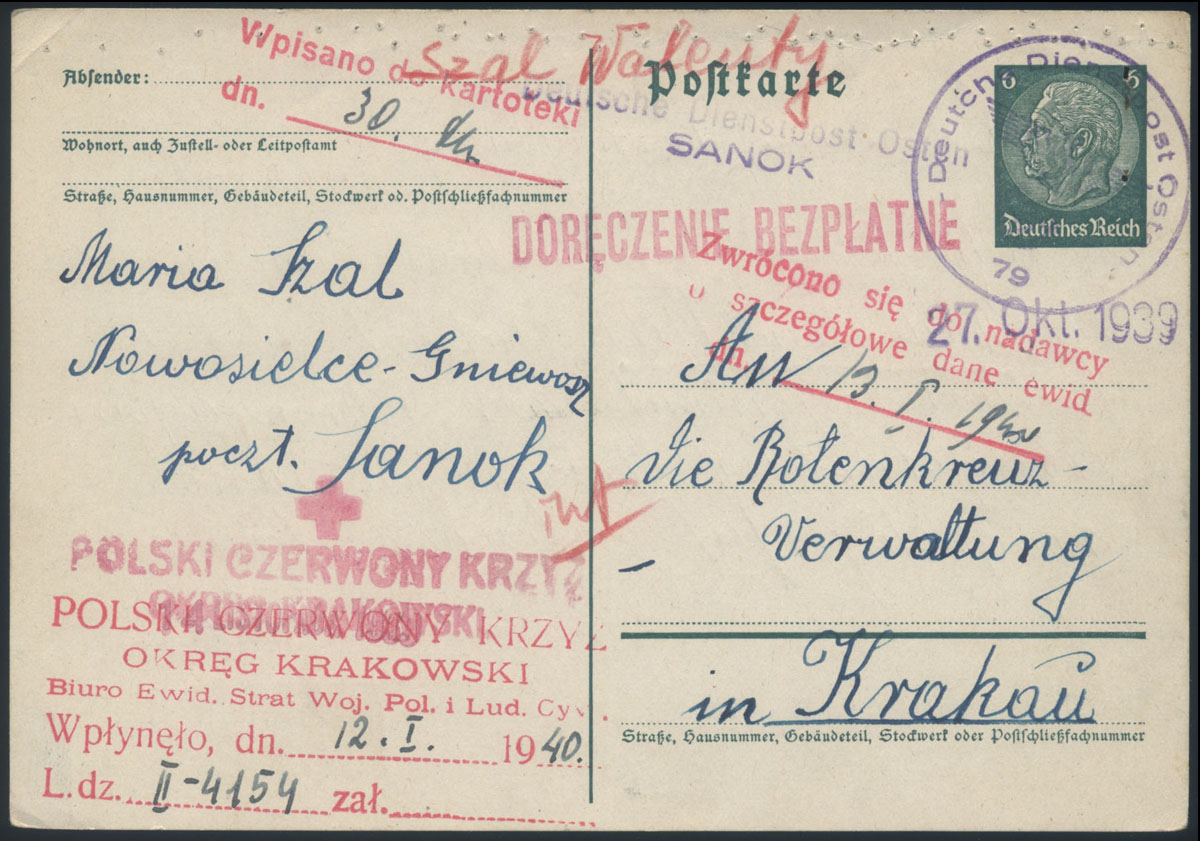 Szal Walenty
Wpisano do kartoteki
dn. 30.
Absender:
Wohnort, auch Zustell- oder Leitpostamt
Straße, Hausnummer, Gebäudeteil, Stockwerk od. Postschließfachnummer
Maria Szal
Nowosielce-Gniewosz
poczt. Sanok
POLSKI CZERWONY KRZYŻ
OKRĘG KRAKOWSKI
POLSKI CZERWONY KRZYŻ
OKRĘG KRAKOWSKI
Biuro Ewid. Strat Woj. Pol. i Lud. Cyw.
Wpłynęło, dn. 12. I. 1940.
L. dz. II-4154 zał.
Postkarte
Deutsche Dienstpost Osten
SANOK
DORĘCZENIE BEZPŁATNE
Deutche Dienstpost Osten
79
27. Okt. 1939
6 6
Deutsches Reich
Zwrócono się do nadawcy
o szczegółowe dane ewid.
dn. 13. I. 1940
An
die Rotenkreuz-
Verwaltung
in Krakau
Straße, Hausnummer, Gebäudeteil, Stockwerk oder Postschließfachnummer